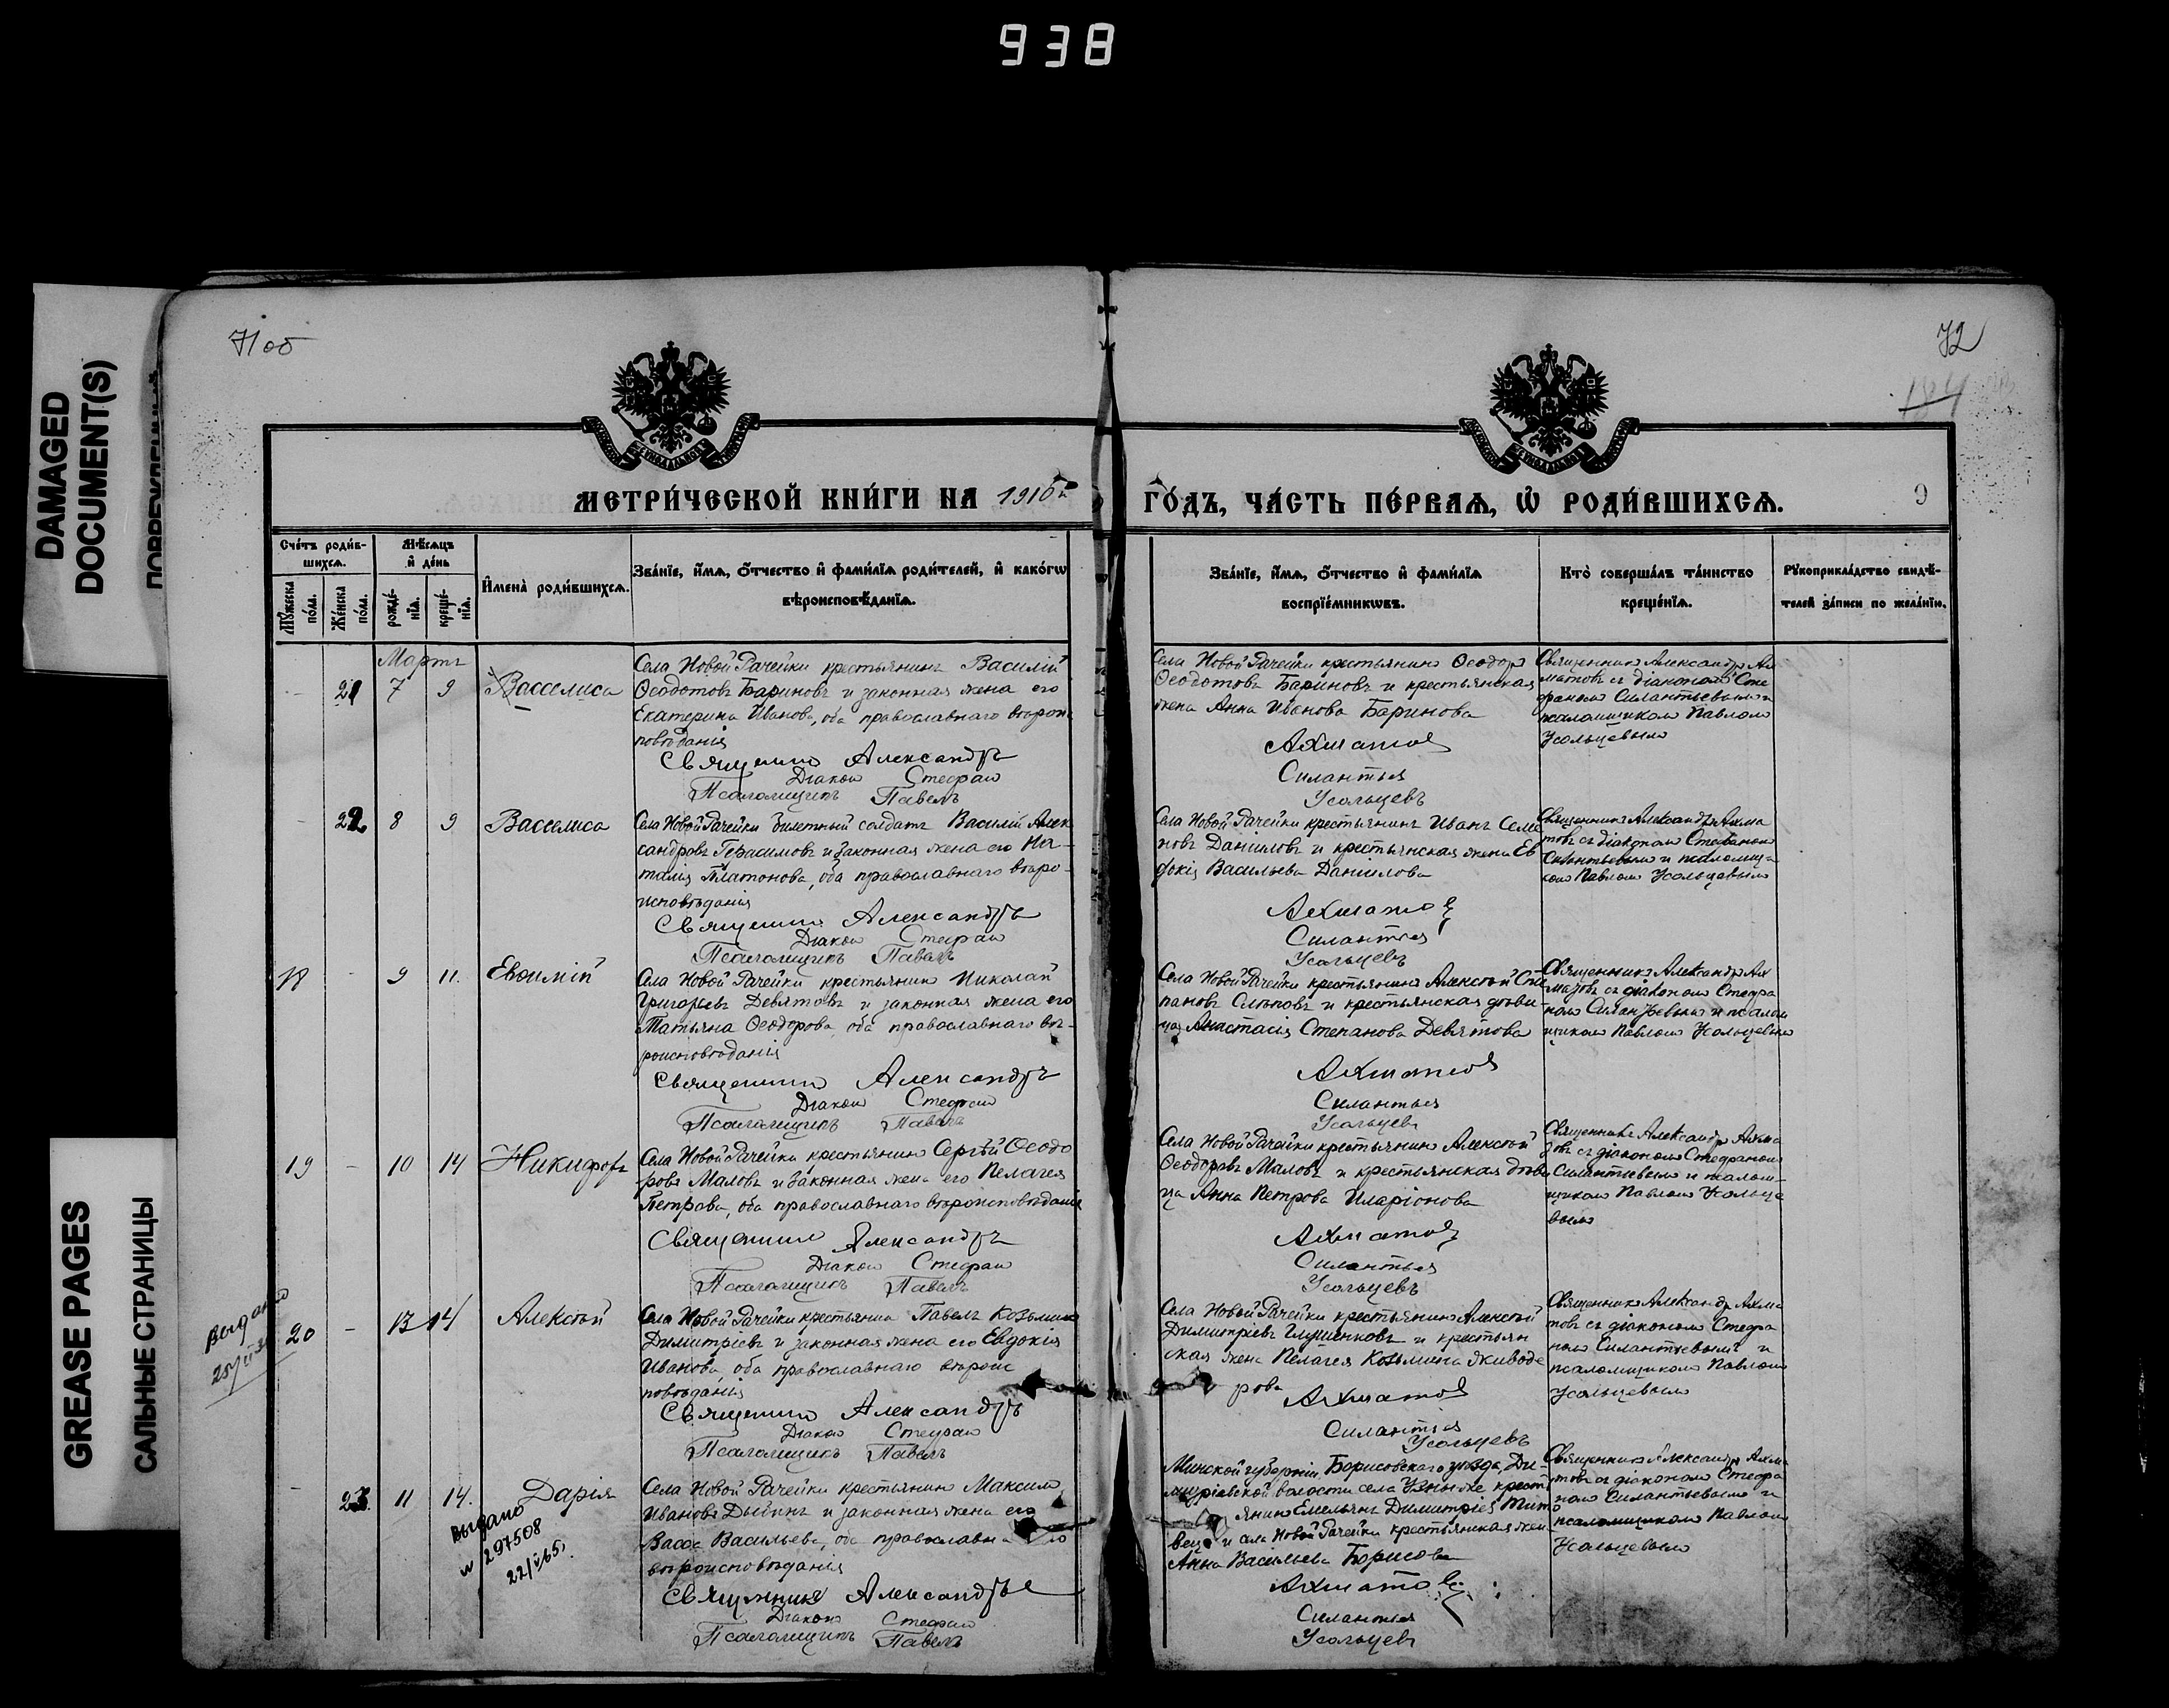 938
DAMAGED
DOCUMENT(S)
GREASE PAGES
САЛЬНЫЕ СТРАНИЦЫ
71 об
72
184
МЕТРИ́ЧЕСКОЙ КНИ́ГИ НА 1916й
ГО́ДЪ, ЧА́СТЬ ПЕ́РВАѦ, Ѽ РОДИ́ВШИХСѦ.
9
Сче́тъ роди́в-
шихсѧ.
Мѣ́сѧцъ
и҆ де́нь
Мꙋ́жеска
по́ла.
Же́нска
по́ла.
рожде́-
нїѧ.
креще́-
нїѧ.
И҆мена̀ роди́вшихсѧ.
Зва́нїе, и҆́мѧ, ѻ҆́тчество и҆ фами́лїѧ роди́телей, и҆ како́гѡ
вѣроисповѣ́данїѧ.
Зва́нїе, и҆́мѧ, ѻ҆́тчество и҆ фами́лїѧ
воспрїе́мникѡвъ.
Кто̀ соверша́лъ та́инство
креще́нїѧ.
Рꙋкоприкла́дство свидѣ́-
телей за́писи по жела́нїю.
Мартъ
21 7 9 Васселиса
Села Новой Рачейки крестьянинъ Василій
Ѳеодотовъ Бариновъ и законная жена его
Екатерина Иванова, оба православнаго вѣроис
повѣданія
Священникъ Александръ
Діаконъ Стефанъ
Псаломщикъ Павелъ
Села Новой Рачейки крестьянинъ Ѳеодоръ
Ѳеодотовъ Бариновъ и крестьянская
жена Анна Иванова Баринова
Ахматовъ
Силантьевъ
Усольцевъ
Священникъ Александръ Ах
матовъ съ діакономъ Сте
фаномъ Силантьевымъ и
псаломщикомъ Павломъ
Усольцевымъ
22 8 9 Васселиса
Села Новой Рачейки билетный солдатъ Василій Алек
сандровъ Герасимовъ и законная жена его На-
талія Платонова, оба православнаго вѣро-
исповѣданія
Священникъ Александръ
Діаконъ Стефанъ
Псаломщикъ Павелъ
Села Новой Рачейки крестьянинъ Иванъ Семе
новъ Даниловъ и крестьянская жена Ев
докія Васильева Данилова
Ахматовъ
Силантьевъ
Усольцевъ
Священникъ Александръ Ахма
товъ съ діакономъ Стефаномъ
Силантьевымъ и псаломщи-
комъ Павломъ Усольцевымъ
18 - 9 11. Евѳимій
Села Новой Рачейки крестьянинъ Николай
Григорьевъ Девятовъ и законная жена его
Татьяна Ѳеодорова, оба православнаго вѣ-
роисповѣданія
Священникъ Александръ
Діаконъ Стефанъ
Псаломщикъ Павелъ
Села Новой Рачейки крестьянинъ Алексѣй Сте
пановъ Слѣповъ и крестьянская дѣви-
ца Анастасія Степанова Девятова
Ахматовъ
Силантьевъ
Усольцевъ
Священникъ Александръ Ах
матовъ съ діакономъ Стефа
номъ Силантьевымъ и псалом
щикомъ Павломъ Усольцевымъ
19 - 10 14 Никифоръ
Села Новой Рачейки крестьянинъ Сергѣй Ѳеодо
ровъ Маловъ и законная жена его Пелагея
Петрова, оба православнаго вѣроисповѣданія
Священникъ Александръ
Діаконъ Стефанъ
Псаломщикъ Павелъ
Села Новой Рачейки крестьянинъ Алексѣй
Ѳеодоровъ Маловъ и крестьянская дѣви
ца Анна Петрова Иларіонова
Ахматовъ
Силантьевъ
Усольцевъ
Священникъ Александръ Ахма
товъ съ діакономъ Стефаномъ
Силантьевымъ и псалом-
щикомъ Павломъ Усольце
вымъ
Выдано
20 - 13 14 Алексѣй
Села Новой Рачейки крестьянинъ Павелъ Козьминъ
Димитріевъ и законная жена его Евдокія
Иванова, оба православнаго вѣроис
повѣданія
Священникъ Александръ
Діаконъ Стефанъ
Псаломщикъ Павелъ
Села Новой Рачейки крестьянинъ Алексѣй
Димитріевъ Глушенковъ и крестьян
ская жена Пелагея Козьмина Живоде
рова
Ахматовъ
Силантьевъ
Усольцевъ
Священникъ Александръ Ахма
товъ съ діакономъ Стефа
номъ Силантьевымъ и
псаломщикомъ Павломъ
Усольцевымъ
- 23 11 14. Дарія
Выдано
№ 297508
22/V65
Села Новой Рачейки крестьянинъ Максимъ
Ивановъ Дынинъ и законная жена его
Васса Васильева, оба православнаго
вѣроисповѣданія
Священникъ Александръ
Діаконъ Стефанъ
Псаломщикъ Павелъ
Минской губерніи, Борисовскаго уѣзда, Ди-
митріевской волости села крестья
янинъ Емельянъ Димитріевъ Тито
вецъ и села Новой Рачейки крестьянская жена
Анна Васильева Борисова
Ахматовъ
Силантьевъ
Усольцевъ
Священникъ Александръ Ахма
товъ съ діакономъ Стефа
номъ Силантьевымъ и
псаломщикомъ Павломъ
Усольцевымъ